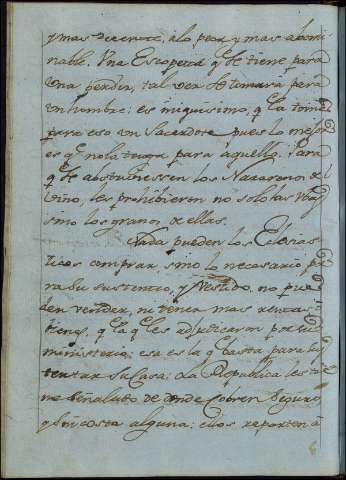 y mas decente, alo peor, y mas abomi
nable. Una Escopeta q se tiene para
una perdiz, tal vez se tomará para
un hombre: es iniquisimo, q la tome
para eso un Sacerdote, pues lo mejor
es q no la tenga para aquello. Para
q se abstubiessen los Nazarenos de
vino, les prohibieron no solo las Ubas
sino los granos de ellas.
Nada pueden los Eclesias
ticos comprar, sino lo necesario pa
ra Su sustento, y Vestido, no pue
den vender, ni tener mas rentas
tienes, q la q les adjudicaron por su
ministerio: esa es la q basta para sus
tentar su Casa: La Republica les tie
ne señalado de donde Cobren Seguro,
y Sin costa alguna: ellos reporten a